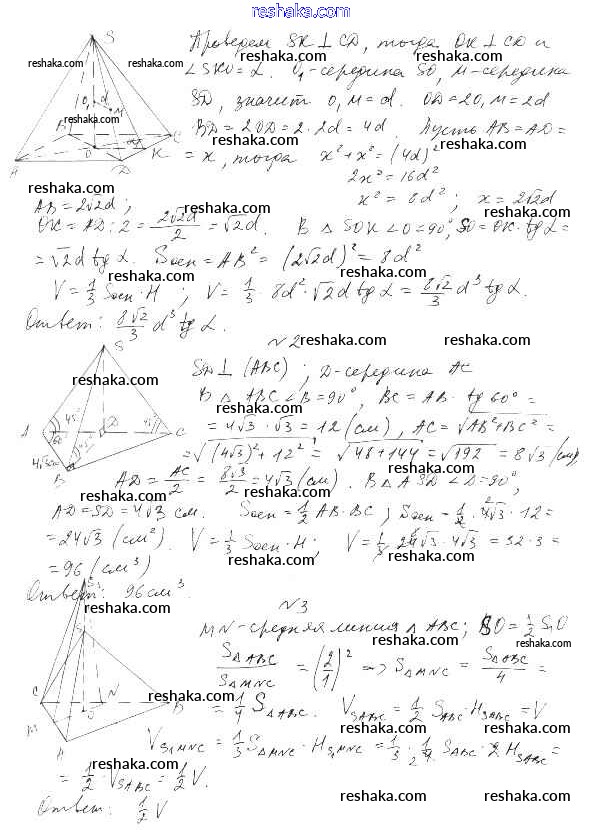 reshaka.com
Проведем SK ⊥ CD, тогда OK ⊥ CD и
∠SKO = α. O₁-середина SO, M-середина
SD, значит O₁M = d. OD = 2O₁M = 2d
BD = 2OD = 2·2d = 4d. Пусть AB = AD =
= x, тогда x² + x² = (4d)²
2x² = 16d²
x² = 8d²; x = 2√2d
AB = 2√2d;
OK = AD : 2 = 2√2d/2 = √2d. В △SOK ∠O = 90°, SO = OK·tg α =
= √2d tg α. Sосн = AB² = (2√2d)² = 8d²
V = 1/3 Sосн·H; V = 1/3·8d²·√2d tg α = 8√2/3 d³ tg α.
Ответ: 8√2/3 d³ tg α.
№2
SD ⊥ (ABC); D-середина AC
В △ABC ∠B = 90°, BC = AB·tg 60° =
= 4√3·√3 = 12 (см), AC = √(AB² + BC²) =
= √((4√3)² + 12²) = √(48 + 144) = √192 = 8√3 (см),
AD = AC/2 = 8√3/2 = 4√3 (см). В △ASD ∠D = 90°,
AD = SD = 4√3 см. Sосн = 1/2 AB·BC; Sосн = 1/2·4√3·12 =
= 24√3 (см²). V = 1/3 Sосн·H; V = 1/3·24√3·4√3 = 32·3 =
= 96 (см³)
Ответ: 96 см³.
№3
MN-средняя линия △ABC; SO = 1/2 S₁O
S△ABC/S△MNC = (2/1)² => S△MNC = S△ABC/4 =
= 1/4 S△ABC. V SABC = 1/2 S ABC·H SABC = V
V S₁MNC = 1/3 S△MNC·H S₁MNC = 1/3·1/4 S ABC·2H SABC =
= 1/2·V SABC = 1/2 V.
Ответ: 1/2 V